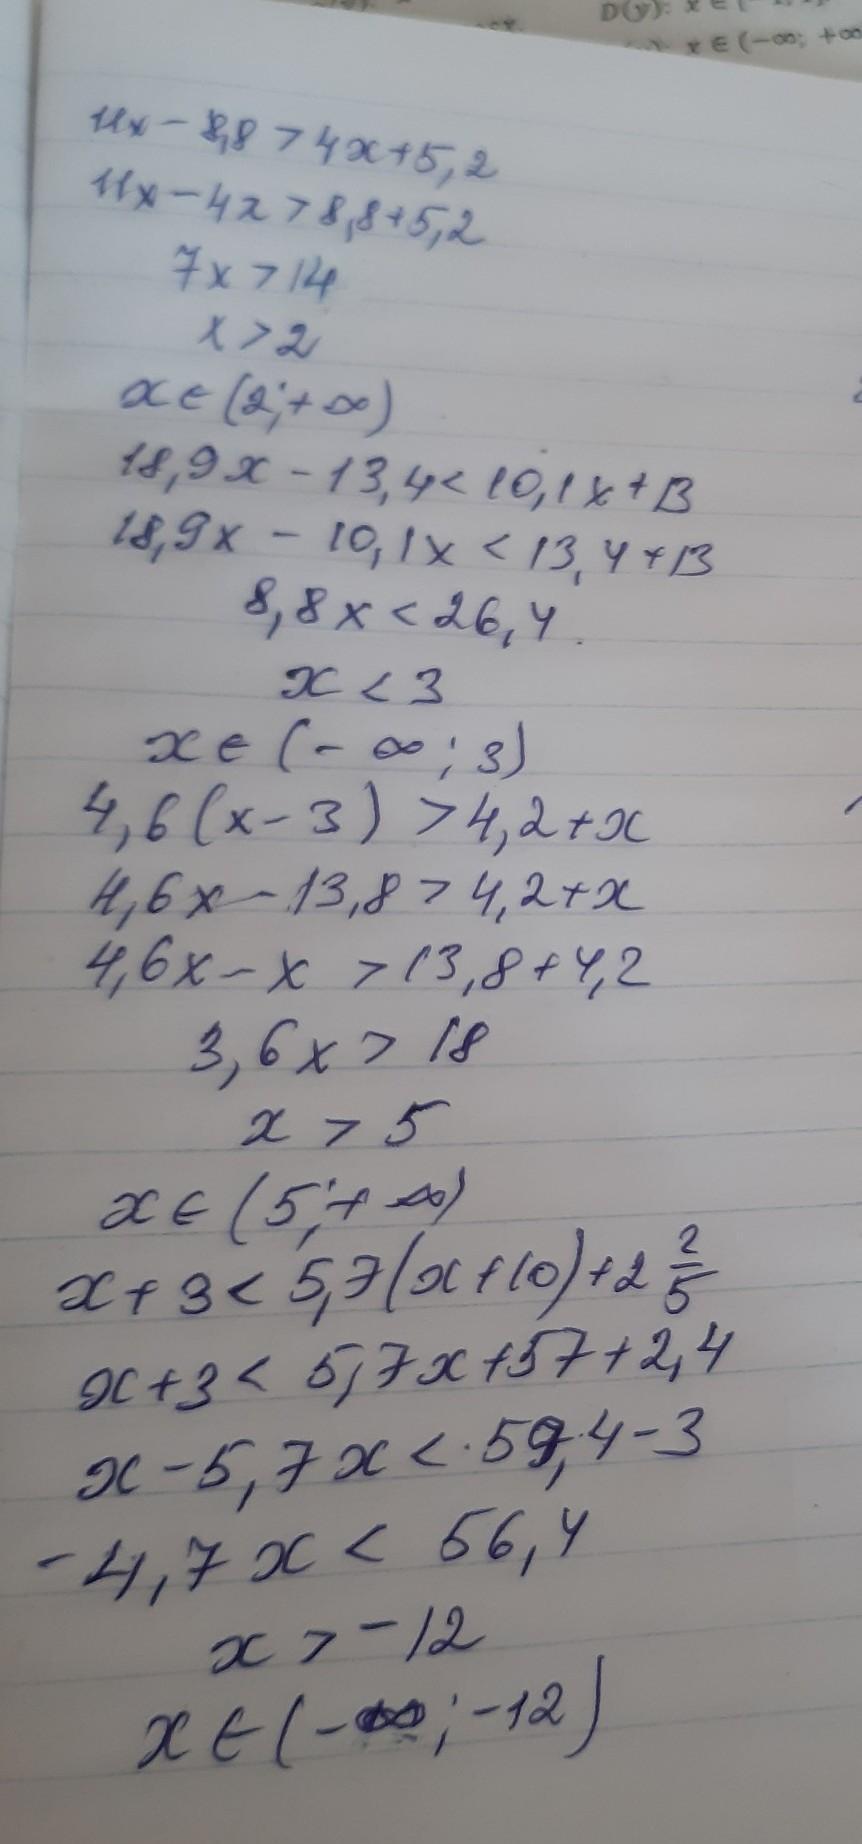 D(y): x ∈ (-
x ∈ (-∞; +∞
11x - 8,8 > 4x + 5,2
11x - 4x > 8,8 + 5,2
7x > 14
x > 2
x ∈ (2; + ∞)
18,9x - 13,4 < 10,1x + 13
18,9x - 10,1x < 13,4 + 13
8,8x < 26,4
x < 3
x ∈ (- ∞; 3)
4,6(x - 3) > 4,2 + x
4,6x - 13,8 > 4,2 + x
4,6x - x > 13,8 + 4,2
3,6x > 18
x > 5
x ∈ (5; + ∞)
x + 3 < 5,7(x + 10) + 2 2/5
x + 3 < 5,7x + 57 + 2,4
x - 5,7x < 59,4 - 3
-4,7x < 56,4
x > -12
x ∈ (-∞; -12)